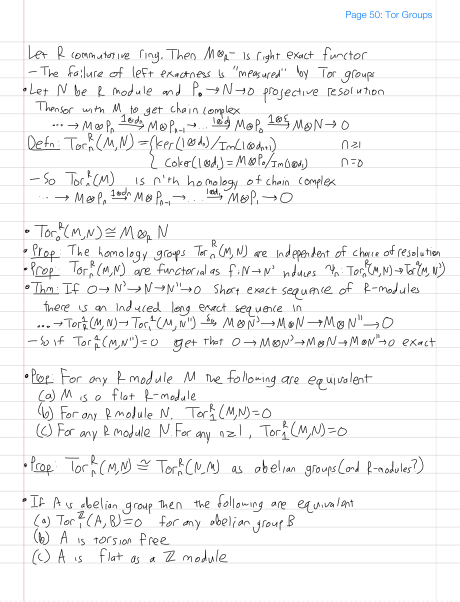 Page 50: Tor Groups
Let R commutative ring. Then M⊗_R – is right exact functor
– The failure of left exactness is "measured" by Tor groups
• Let N be R module and P. → N → 0 projective resolution
Thensor with M to get chain complex
... → M⊗P_n →^{1⊗d_n} M⊗P_{n-1} → ... →^{1⊗d_1} M⊗P_0 →^{1⊗ε} M⊗N → 0
Defn: Tor_n^R(M,N) = { ker(1⊗d_n)/Im(1⊗d_{n+1}) n≥1
{ Coker(1⊗d_1) = M⊗P_0/Im(1⊗d_1) n=0
– So Tor_n^R(M) is n'th homology of chain complex
... → M⊗P_n →^{1⊗d_n} M⊗P_{n-1} → ... →^{1⊗d_1} M⊗P_1 → 0
• Tor_0^R(M,N) ≅ M⊗_R N
• Prop: The homology groups Tor_n^R(M,N) are independent of choice of resolution
• Prop: Tor_n^R(M,N) are functorial as f:N→N' induces : Tor_n^R(M,N)→Tor_n^R(M,N')
• Thm: If 0→N'→N→N''→0 Short exact sequence of R-modules
there is an induced long exact sequence in
... → Tor_1^R(M,N) → Tor_1^R(M,N'') →^{δ_0} M⊗N' → M⊗N → M⊗N'' → 0
– So if Tor_1^R(M,N'')=0 get that 0→M⊗N'→M⊗N→M⊗N''→0 exact
• Prop: For any R module M the following are equivalent
(a) M is a flat R-module
(b) For any R module N, Tor_1^R(M,N)=0
(c) For any R module N For any n≥1, Tor_1^R(M,N)=0
• Prop: Tor_n^R(M,N) ≅ Tor_n^R(N,M) as abelian groups (and R-modules?)
• If A is abelian group then the following are equivalent
(a) Tor_1^ℤ(A,B)=0 for any abelian group B
(b) A is torsion free
(c) A is flat as a ℤ module